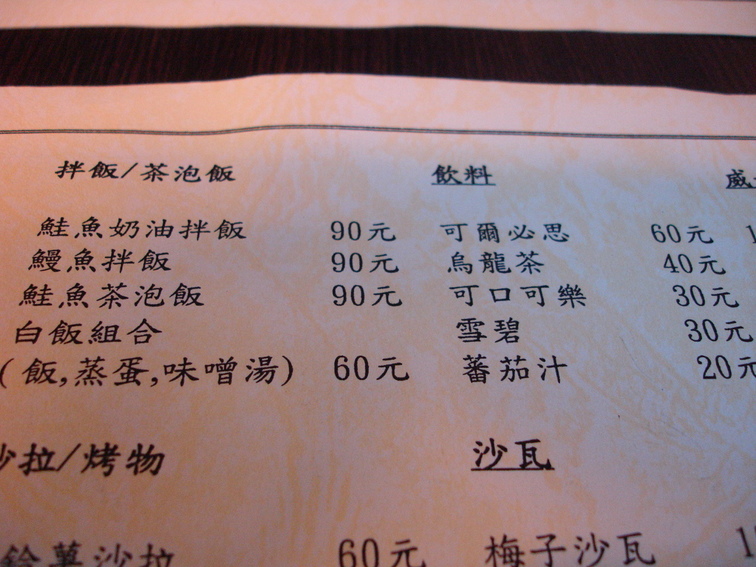 拌飯/茶泡飯 飲料 威
鮭魚奶油拌飯 90元 可爾必思 60元
鰻魚拌飯 90元 烏龍茶 40元
鮭魚茶泡飯 90元 可口可樂 30元
白飯組合 雪碧 30元
(飯,蒸蛋,味噌湯) 60元 蕃茄汁 20元
沙拉/烤物 沙瓦
鈴薯沙拉 60元 梅子沙瓦